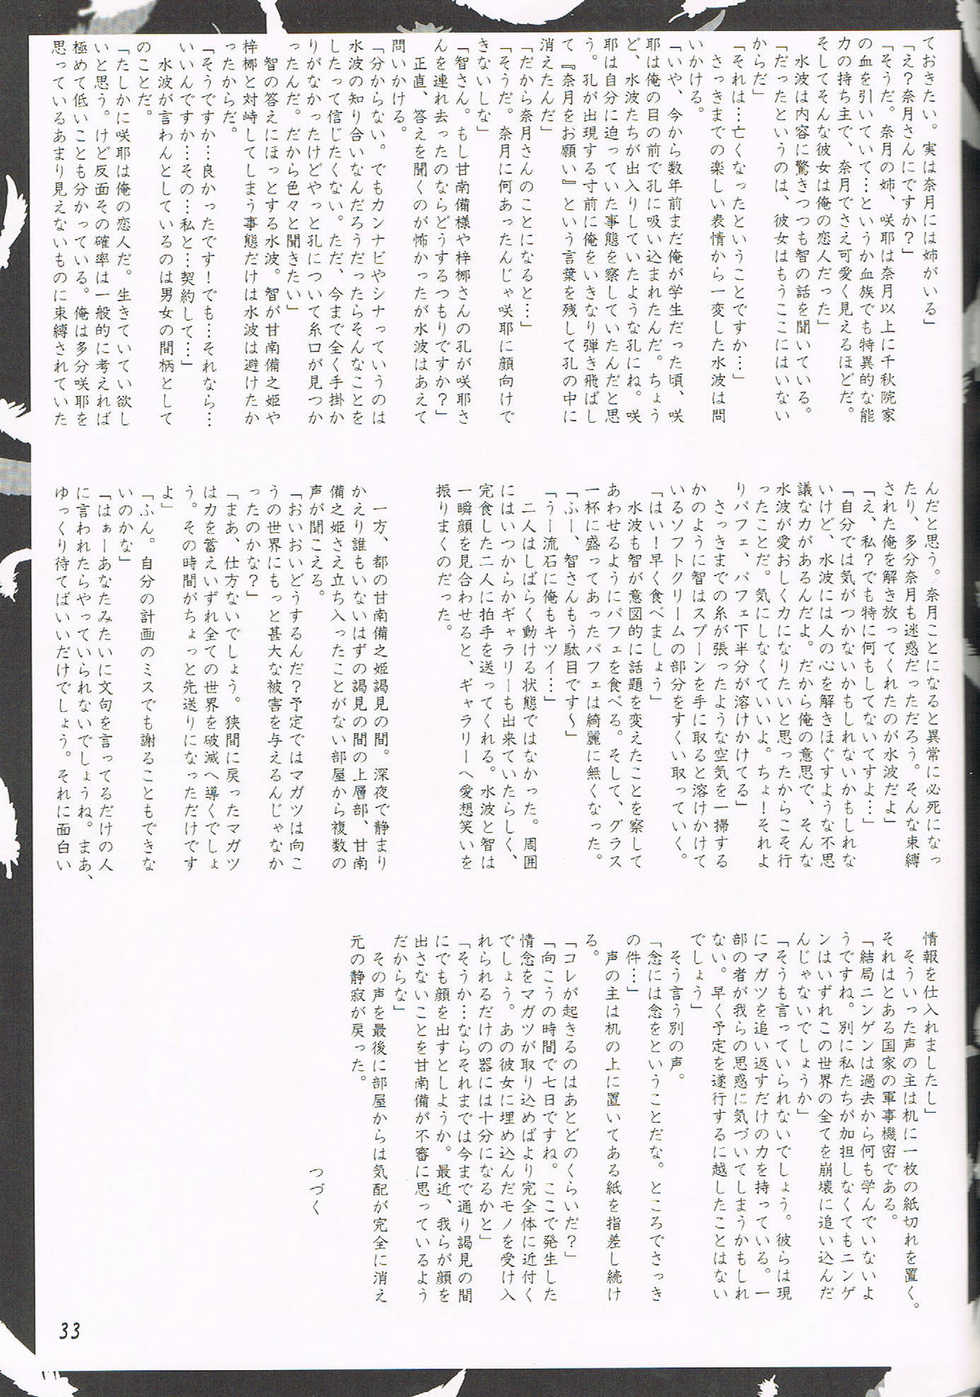 ておきたい。実は奈月には姉がいる」
「え？奈月さんにですか？」
「そうだ。奈月の姉、咲耶は奈月以上に千秋院家
の血を引いていて…というか血族でも特異的な能
力の持ち主で、奈月でさえ可愛く見えるほどだ。
そしてそんな彼女は俺の恋人だった」
　水波は内容に驚きつつも智の話を聞いている。
「だったというのは、彼女はもうここにはいない
からだ」
「それは…亡くなったということですか…」
　さっきまでの楽しい表情から一変した水波は問
いかける。
「いや、今から数年前まだ俺が学生だった頃、咲
耶は俺の目の前で孔に吸い込まれたんだ。ちょう
ど、水波たちが出入りしていたような孔にね。咲
耶は自分に迫っていた事態を察していたんだと思
う。孔が出現する寸前に俺をいきなり弾き飛ばし
て『奈月をお願い』という言葉を残して孔の中に
消えたんだ」
「だから奈月さんのことになると…」
「そうだ。奈月に何かあったんじゃ咲耶に顔向けで
きないしな」
「智さん。もし甘南備様や梓梛さんの孔が咲耶さ
んを連れ去ったのならどうするつもりですか？」
　正直、答えを聞くのが怖かったが水波はあえて
問いかける。
「分からない。でもカンナビやシナっていうのは
水波の知り合いなんだろうだったらそんなことを
したって信じたくない。ただ、今まで全く手掛か
りがなかったけどやっと孔について糸口が見つか
ったんだ。だから色々と聞きたい」
　智の答えにほっとする水波。智が甘南備之姫や
梓梛と対峙してしまう事態だけは水波は避けたか
ったからだ。
「そうですか…良かったです！でも…それなら…
いいんですか…その…私と…契約して…」
　水波が言わんとしているのは男女の間柄として
のことだ。
「たしかに咲耶は俺の恋人だ。生きていて欲し
いと思う。けど反面その確率は一般的に考えれば
極めて低いことも分かっている。俺は多分咲耶を
思っているあまり見えないものに束縛されていた
んだと思う。奈月ことになると異常に必死になっ
たり、多分奈月も迷惑だっただろう。そんな束縛
された俺を解き放ってくれたのが水波だよ」
「え、私？でも特に何もしてないてすよ…」
「自分では気がつかないかもしれないかもしれな
いけど、水波には人の心を解きほぐすような不思
議な力があるんだよ。だから俺の意思で、そんな
水波が愛おしく力になりたいと思ったからこそ行
ったことだ。気にしなくていいよ。ちょ！それよ
りパフェ、パフェ下半分が溶けかけてる」
　さっきまでの糸が張ったような空気を一掃する
かのように智はスプーンを手に取ると溶けかけて
いるソフトクリームの部分をすくい取っていく。
「はい！早く食べましょう」
　水波も智が意図的に話題を変えたことを察して
あわせるようにパフェを食べる。そして、グラス
一杯に盛ってあったパフェは綺麗に無くなった。
「ふー、智さんもう駄目です～」
「うー流石に俺もキツイ…」
　二人はしばらく動ける状態ではなかった。周囲
にはいつからかギャラリーも出来ていたらしく、
完食した二人に拍手を送ってくれる。水波と智は
一瞬顔を見合わせると、ギャラリーへ愛想笑いを
振りまくのだった。
　一方、都の甘南備之姫謁見の間。深夜で静まり
かえり誰もいないはずの謁見の間の上層部、甘南
備之姫さえ立ち入ったことがない部屋から複数の
声が聞こえる。
「おいおいどうするんだ？予定ではマガツは向こ
うの世界にもっと甚大な被害を与えるんじゃなか
ったのかな？」
「まあ、仕方ないでしょう。狭間に戻ったマガツ
は力を蓄えいずれ全ての世界を破滅へ導くでしょ
う。その時間がちょっと先送りになっただけです
よ」
「ふん。自分の計画のミスでも謝ることもできな
いのかな」
「はぁーあなたみたいに文句を言ってるだけの人
に言われたらやっていられないでしょうね。まあ、
ゆっくり待てばいいだけでしょう。それに面白い
情報を仕入れましたし」
　そういった声の主は机に一枚の紙切れを置く。
それはとある国家の軍事機密である。
「結局ニンゲンは過去から何も学んでいないよ
うですね。別に私たちが加担しなくてもニンゲ
ンはいずれこの世界の全てを崩壊に追い込んだ
んじゃないでしょうか」
「そうも言っていられないでしょう。彼らは現
にマガツを追い返すだけの力を持っている。一
部の者が我らの思惑に気づいてしまうかもしれ
ない。早く予定を遂行するに越したことはない
でしょう」
　そう言う別の声。
「念には念をということだな。ところでさっき
の件…」
　声の主は机の上に置いてある紙を指差し続け
る。
「コレが起きるのはあとどのくらいだ？」
「向こうの時間で七日ですね。ここで発生した
情念をマガツが取り込めばより完全体に近付く
でしょう。あの彼女に埋め込んだモノを受け入
れられるだけの器には十分になるかと」
「そうか…ならそれまでは今まで通り謁見の間
にでも顔を出すとしようか。最近、我らが顔を
出さないことを甘南備が不審に思っているよう
だからな」
　その声を最後に部屋からは気配が完全に消え
元の静寂が戻った。
つづく
33